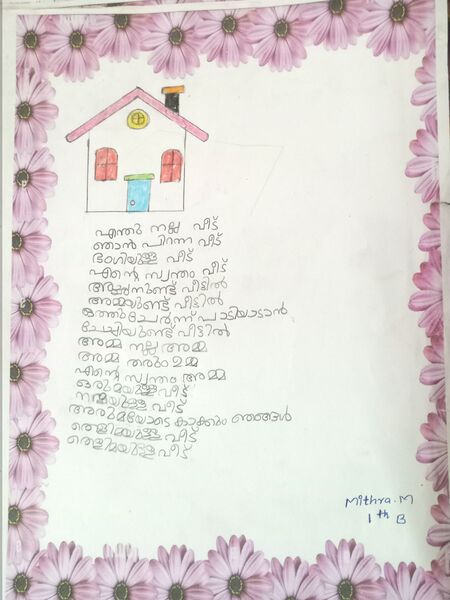 എന്തു നല്ല വീട്
ഞാൻ പിറന്ന വീട്
ഭംഗിയുള്ള വീട്
എന്റെ സ്വന്തം വീട്
അച്ഛനുണ്ട് വീട്ടിൽ
അമ്മയുണ്ട് വീട്ടിൽ
ഒത്തുചേർന്ന് പാടിയാടാൻ
ചേച്ചിയുണ്ട് വീട്ടിൽ
അമ്മ നല്ല അമ്മ
അമ്മ തരും ഉമ്മ
എന്റെ സ്വന്തം അമ്മ
ഒരുമയുള്ള വീട്
നന്മയുള്ള വീട്
അരുമയോടെ കാക്കും ഞങ്ങൾ
തെളിമയുള്ള വീട്
തെളിമയുള്ള വീട്
Mithra.M
1th B